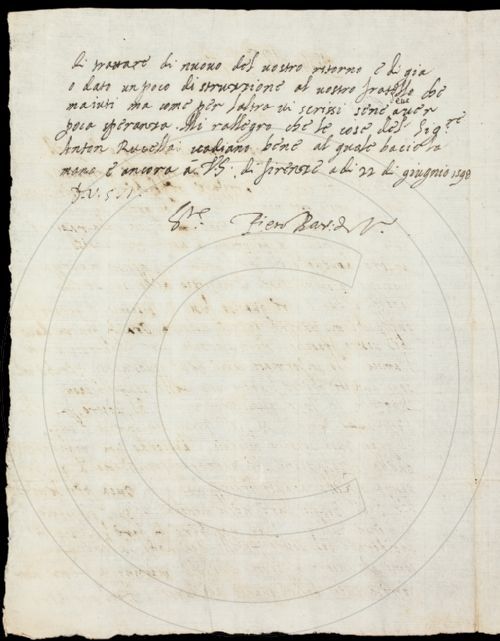 di trattare di nuovo del vostro ritorno e di gia
o dato un poco di struzzione al vostro fratello che
m'aiuti ma come per l'altra vi scrissi sene deve aver
poca speranza. Mi rallegro che le cose del Sigre
Anton vadiano bene al quale bacio la
mano e ancora a V S. di firenze a di 22 di giugno 1598
D. V. S. M.
Piero